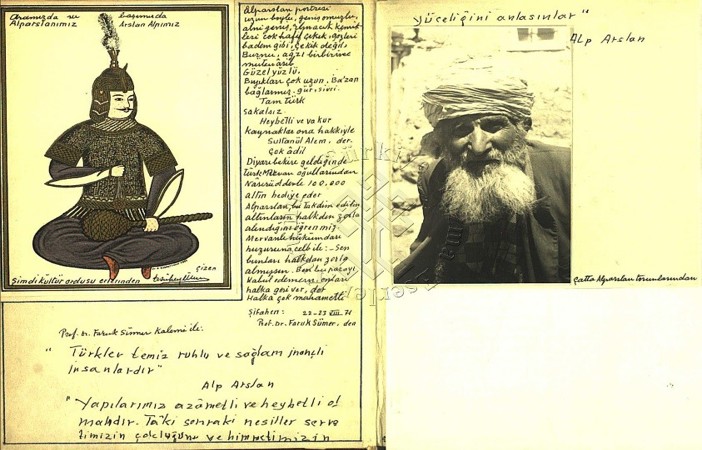 Aramızda ve başımızda
Alparslanımız Arslan Alpımız
Çizen
Şimdi kültür ordusu erlerinden
Alparslan portresi
uzun boylu, geniş omuzlu,
alnı geniş, elmacık kemik-
leri çok hafif çekik, gözleri
badem gibi, çekik değil,
Burnu, ağzı birbirine
mütenasib
Güzel yüzlü.
Bıyıkları çok uzun, Ba'zan
bağlarmış. gür, sivri.
Tam türk
sakalsız.
Heybetli ve vakur
Kaynaklar ona hakkiyle
Sultanül Alem, der.
Çok âdil
Diyarıbekire geldiğinde
türk Mervan oğullarından
Nasırüddevle 100.000
altın hediye eder
Alparslan, bu takdim edilen
altınların halkdan zorla
alındığını öğrenmiş
Mervanlı hükümdarı
huzuruna celb ile: - Sen
bunları halkdan zorla
almışsın. Ben bu parayı
Kabul edemem, onları
halka geri ver, der
Halka çok mahametli
Şifahen: 22-23 VIII. 71
Prof. Dr. Faruk Sümer, den
Prof. Dr. Faruk Sümer Kalemi ile:
" Türkler temiz ruhlu ve sağlam inançlı
insanlardır"
Alp Arslan
" Yapılarımız azâmetli ve heybetli ol
malıdır. Tâki sonraki nesiller serve
timizin çokluğunu ve himmetimizin
yüceliğini anlasınlar "
Alp Arslan
Çatta Alparslan torunlarından